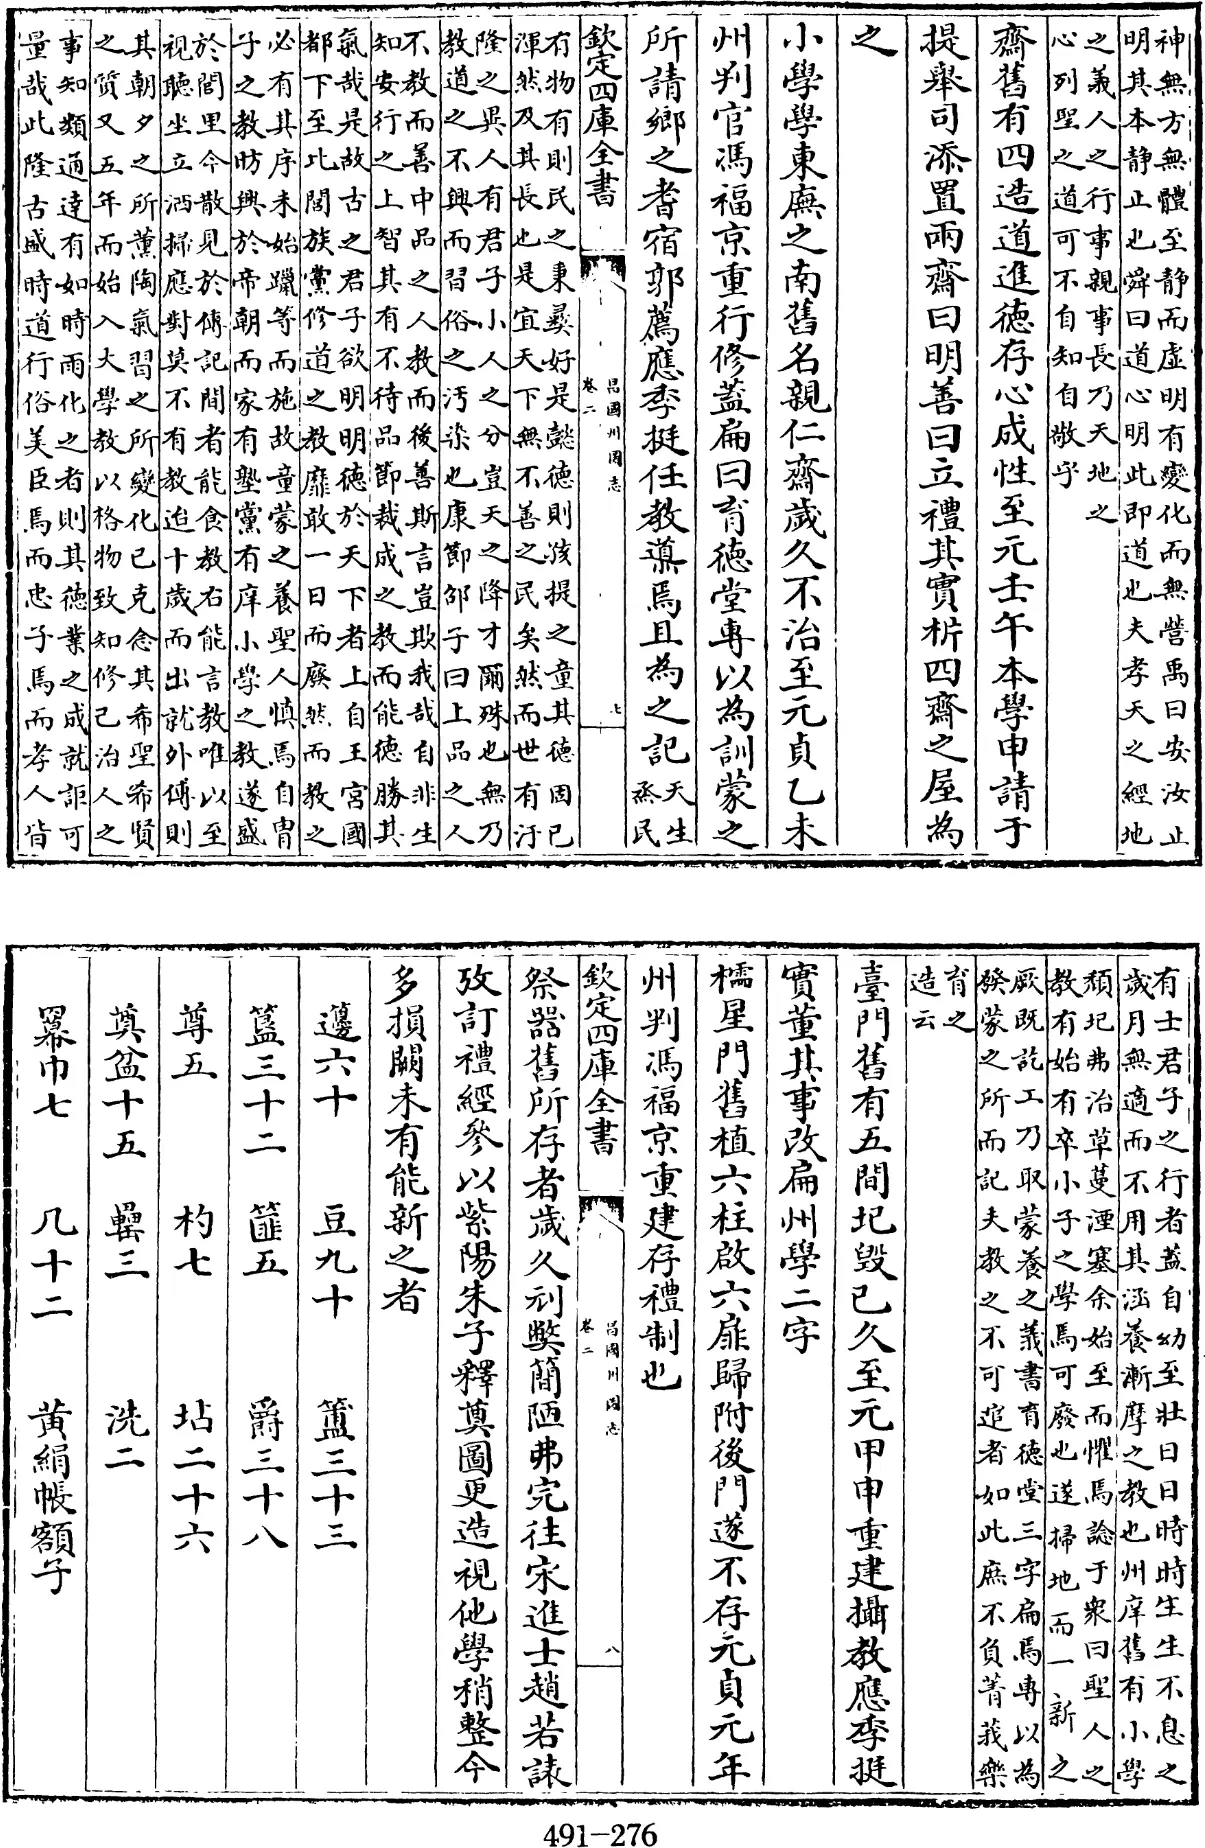 神無方無體至静而虚明有變化而無營禹曰安汝止
明其本静止也舜曰道心明此即道也夫孝天之經地
之義人之行事親事長乃天地之
心列聖之道可不自知自敬乎
齋舊有四造道進徳存心成性至元壬午本學申請于
提舉司添置兩齋曰明善曰立禮其實析四齋之屋為
之
小學學東廡之南舊名親仁齋歲久不治至元貞乙未
州判官馮福京重行修葢扁曰育徳堂専以為訓蒙之
所請鄉之耆宿郭薦應季挺任教導焉且為之記
天生
烝民
有物有則民之秉彞好是懿徳則孩提之童其徳固已
渾然及其長也是宜天下無不善之民矣然而世有汙
隆之異人有君子小人之分豈天之降才爾殊也無乃
教道之不興而習俗之汚染也康節邵子曰上品之人
不教而善中品之人教而後善斯言豈欺我哉自非生
知安行之上智其有不待品節裁成之教而能徳勝其
氣哉是故古之君子欲明明徳於天下者上自王宫國
都下至比閭族黨修道之教靡敢一日而廢然而教之
必有其序未始躐等而施故童蒙之養聖人慎焉自胄
子之教昉興於帝朝而家有塾黨有庠小學之教遂盛
於閭里今散見於傳記間者能食教右能言教唯以至
視聽坐立洒掃應對莫不有教迨十歲而出就外傅則
其朝夕之所薰陶氣習之所變化已克念其希聖希賢
之質又五年而始入大學教以格物致知修己治人之
事知類通達有如時雨化之者則其徳業之成就詎可
量哉此隆古盛時道行俗美臣焉而忠子焉而孝人皆
欽定四庫全書
昌國州圖志
卷二
七
有士君子之行者葢自幼至壯日日時時生生不息之
歲月無適而不用其涵養漸摩之教也州庠舊有小學
頽圮弗治草蔓湮塞余始至而懼焉諗于衆曰聖人之
教有始有卒小子之學焉可廢也遂掃地而一新之
厥既訖工乃取蒙養之義書育徳堂三字扁焉専以為
發蒙之所而記夫教之不可迨者如此庶不負菁莪樂
育之
造云
臺門舊有五間圮毀已久至元甲申重建攝教應季挺
實董其事改扁州學二字
櫺星門舊植六柱啟六扉歸附後門遂不存元貞元年
州判馮福京重建存禮制也
欽定四庫全書
昌國州圖志
卷二
八
祭器舊所存者歲久刓弊簡陋弗完徃宋進士趙若誄
攷訂禮經參以紫陽朱子釋奠圖更造視他學稍整今
多損闕未有能新之者
籩六十 豆九十 簠三十三
簋三十二 篚五 爵三十八
尊五 杓七 坫二十六
奠盆十五 罍三 洗二
羃巾七 几十二 黄絹帳額子
491-276